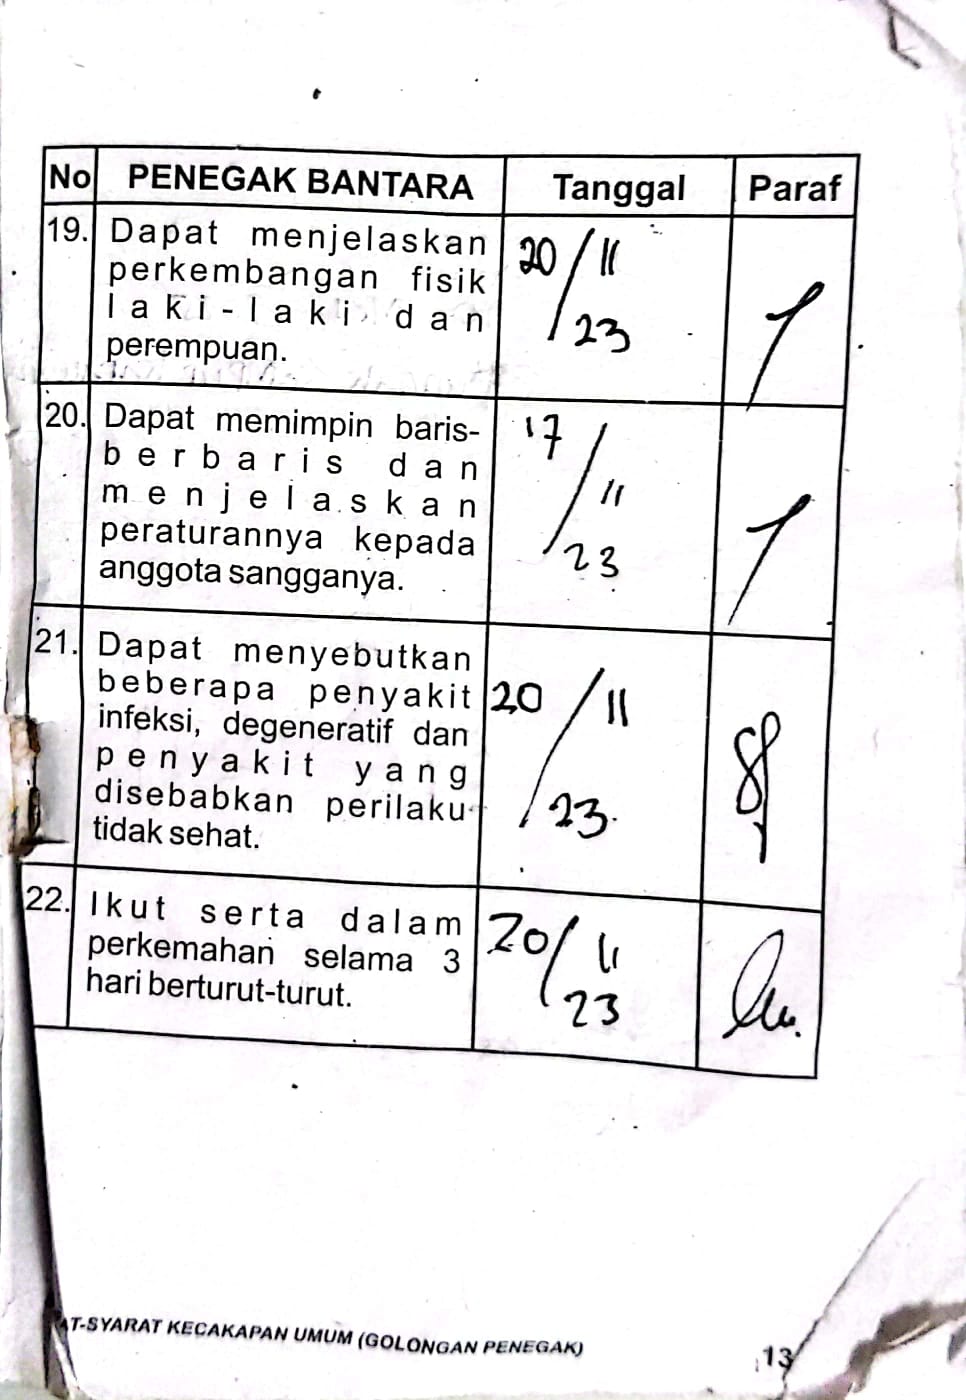 No PENEGAK BANTARA Tanggal Paraf
19. Dapat menjelaskan
perkembangan fisik
laki-laki dan
perempuan.
20/11
23
20. Dapat memimpin baris-
berbaris dan
menjelaskan
peraturannya kepada
anggota sangganya.
17/11
23
21. Dapat menyebutkan
beberapa penyakit
infeksi, degeneratif dan
penyakit yang
disebabkan perilaku
tidak sehat.
20/11
23
22. Ikut serta dalam
perkemahan selama 3
hari berturut-turut.
20/11
23
T-SYARAT KECAKAPAN UMUM (GOLONGAN PENEGAK)
13